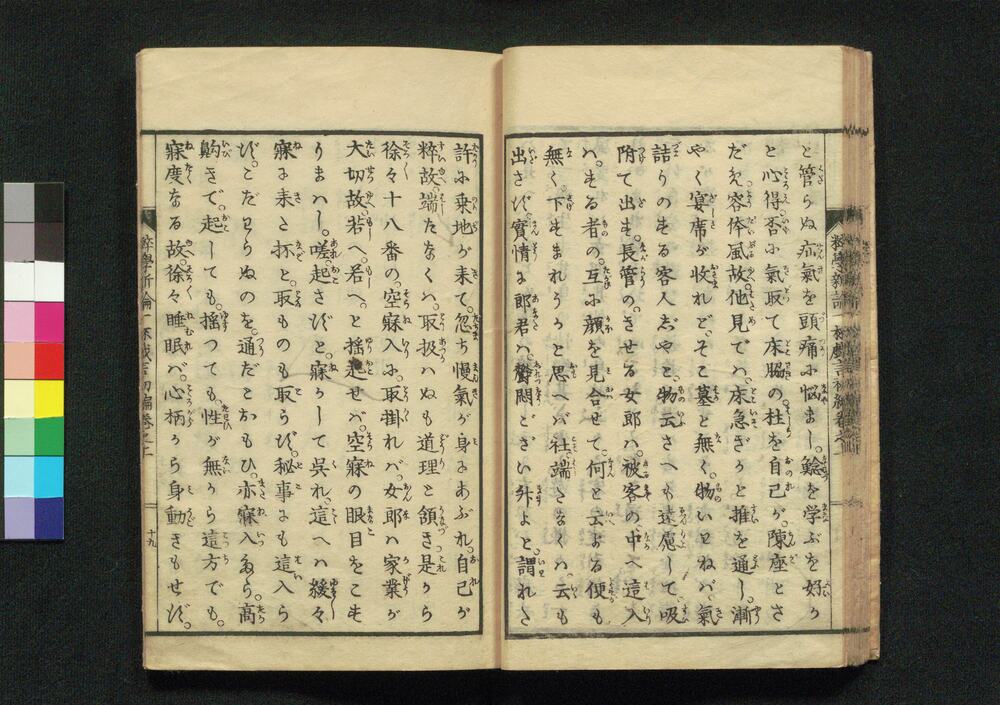 と管らぬ疝氣を頭痛小悩まし。鯰を学ぶを好か
と心得否小氣取て床脇の柱を自己が陳座とさ
だ𛀁容体風故。他見でハ。床急ぎかと推を通し。漸
やく宴席が收れど。そこ墓と無く。物いはねバ。氣
詰りのする客人ぢやと物云さへも遠慮して。吸
附て出す。長管の。させる女郎ハ。被客の中へ這入
ハ。する者の。互小顔を見合せて。何と云出る便も
無く。下すまれうかと思へバ。社端さなくハ。云も
出さず。實情な郎君ハ。欝悶とざい升よと。謂れた
許小乗地が来て。忽ち慢氣が身にあぶれ。自己が
粹故。端たなくハ。取扱ハぬも道理と頷き。是から
徐々十八番の。空寐入小。取掛れバ。女郎ハ家業が
大切故。若へ。君へ。と揺起せバ。空寐の眼目をこす
りまハし。嗟。起さずと。寐かして呉れ。這へハ緩々
寐に来た抔と。取ものも取らず。秘事にも這入ら
ず。こだはらぬのを。通だとおもひ。亦寐入たら。高
鼾きで。起しても。揺つても。性が無から這方でも。
寐度なる故。徐々睡眠バ。心柄から身動きもせず。
十九